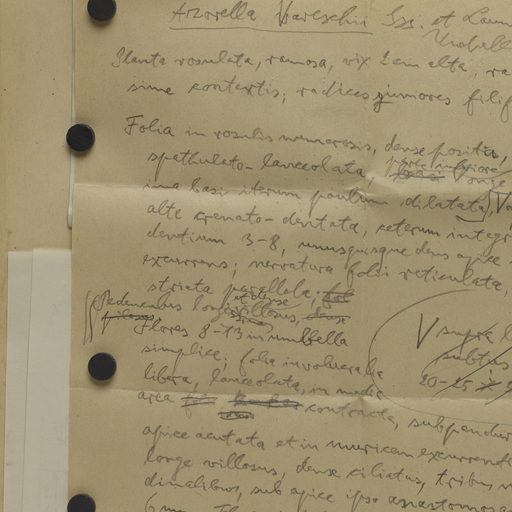 Azorella Vareschii Ssz. et Laun
Umbell
Planta rosulata, ramosa, vix 2 cm alta, ra
sime contextis; radices juniores filif
Folia in rosulis numerosis, dense positis,
spathulato-lanceolata, parte inferiore longe
ima basi iterum paulum dilatata,
alte crenato-dentata, ceterum integr
dentium 3-8, unusquisque dens apice
excurrens; nervatura folii reticulata,
striata parallela;
Pedunculus longe villosus,
Flores 8-13 in umbella
simplice; folia involucralia
V supra
subtus
20-25
libera, lanceolata, in media
area contracta, subpendur
apice acutata et in muricem excurrenti
longe villosus, dense ciliatus, tribus n
dinalibus, sub apice ipso anastomosa